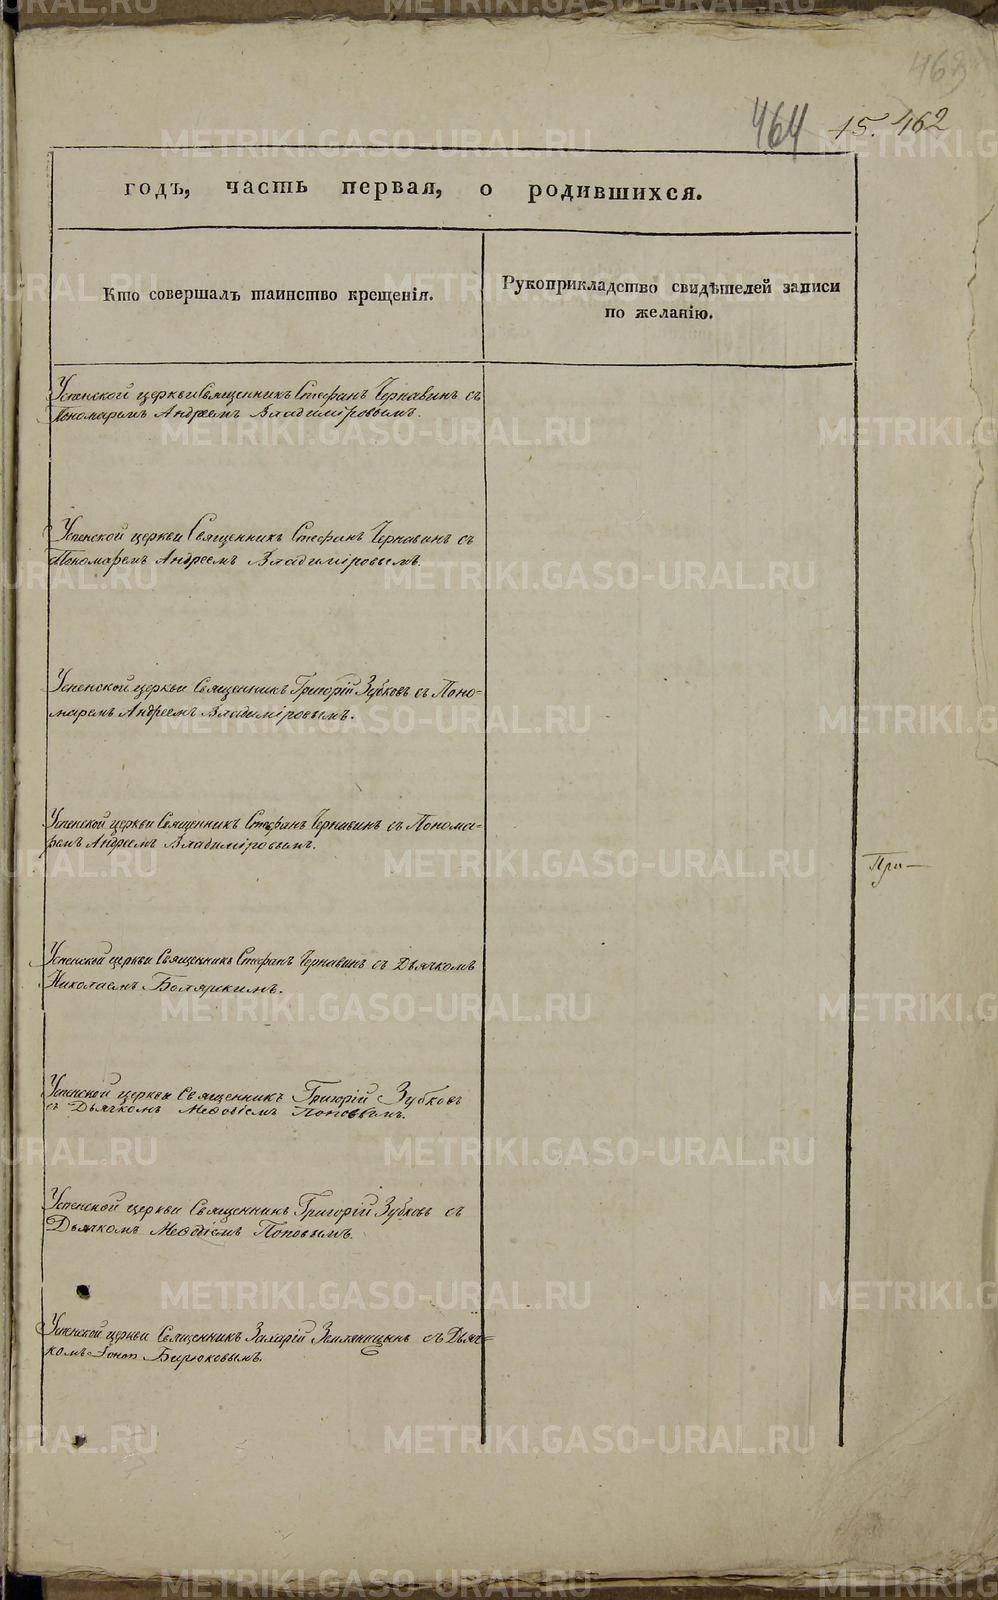 463
464 15. 462
годъ, часть первая, о родившихся.
Кто совершалъ таинство крещенія.
Рукоприкладство свидѣтелей записи
по желанію.
Успенской церкви Священникъ Стефанъ Чернавинъ съ
Пономаремъ Андреемъ Владиміровымъ.
Успенской церкви Священникъ Стефанъ Чернавинъ съ
Пономаремъ Андреемъ Владиміровымъ.
Успенской церкви Священникъ Григорій Зубковъ съ Поно-
маремъ Андреемъ Владиміровымъ.
Успенской церкви Священникъ Стефанъ Чернавинъ съ Понома-
ремъ Андреемъ Владиміровымъ.
При—
Успенской церкви Священникъ Стефанъ Чернавинъ съ Дьячкомъ
Николаемъ Боляркимъ.
Успенской церкви Священникъ Григорій Зубковъ
съ Дьячкомъ Меѳодіемъ Поповымъ.
Успенской церкви Священникъ Григорій Зубковъ съ
Дьячкомъ Меѳодіемъ Поповымъ.
Успенской церкви Священникъ Захарій Земляницынъ съ Дьяч=
комъ Бирюковымъ.
METRIKI.GASO-URAL.RU